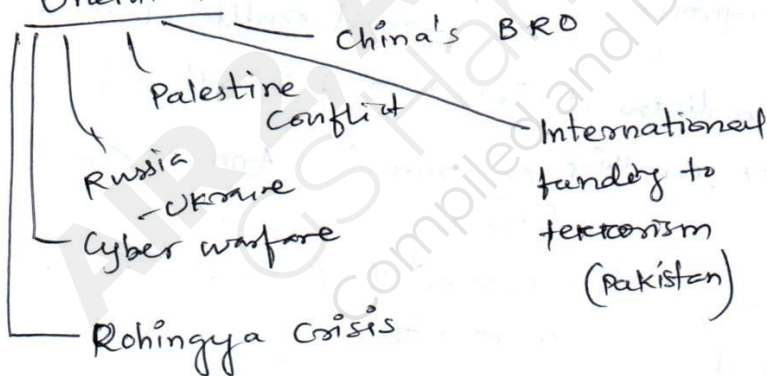 China's BRO
Palestine
Conflict
Russia
-Ukraine
Cyber warfare
Rohingya Crisis
International
funding to
terrorism
(Pakistan)
AIR 2,
GS
Compiled and